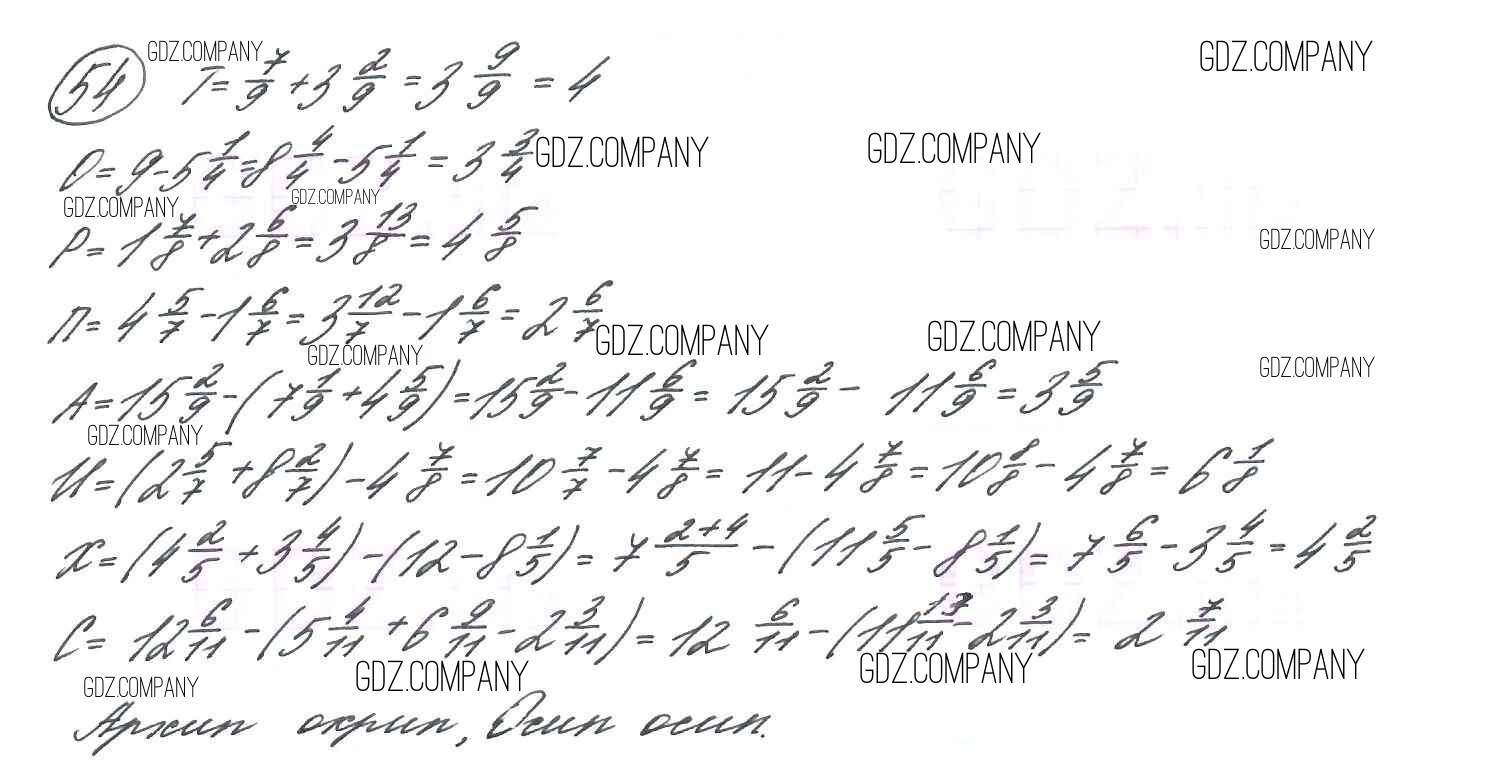 54 GDZ.COMPANY Т = 7/9 + 3 2/9 = 3 9/9 = 4 GDZ.COMPANY
О = 9 - 5 1/4 = 8 4/4 - 5 1/4 = 3 3/4 GDZ.COMPANY GDZ.COMPANY
GDZ.COMPANY GDZ.COMPANY
Р = 1 7/8 + 2 6/8 = 3 13/8 = 4 5/8 GDZ.COMPANY
П = 4 5/7 - 1 6/7 = 3 12/7 - 1 6/7 = 2 6/7 GDZ.COMPANY GDZ.COMPANY
GDZ.COMPANY GDZ.COMPANY
А = 15 2/9 - (7 1/9 + 4 5/9) = 15 2/9 - 11 6/9 = 15 2/9 - 11 6/9 = 3 5/9
GDZ.COMPANY
И = (2 5/7 + 8 2/7) - 4 7/8 = 10 7/7 - 4 7/8 = 11 - 4 7/8 = 10 8/8 - 4 7/8 = 6 1/8
Х = (4 2/5 + 3 4/5) - (12 - 8 1/5) = 7 2+4/5 - (11 5/5 - 8 1/5) = 7 6/5 - 3 4/5 = 4 2/5
С = 12 6/11 - (5 4/11 + 6 9/11 - 2 3/11) = 12 6/11 - (11 13/11 - 2 3/11) = 2 7/11
GDZ.COMPANY GDZ.COMPANY GDZ.COMPANY GDZ.COMPANY
Архип охрип, Осип осип.